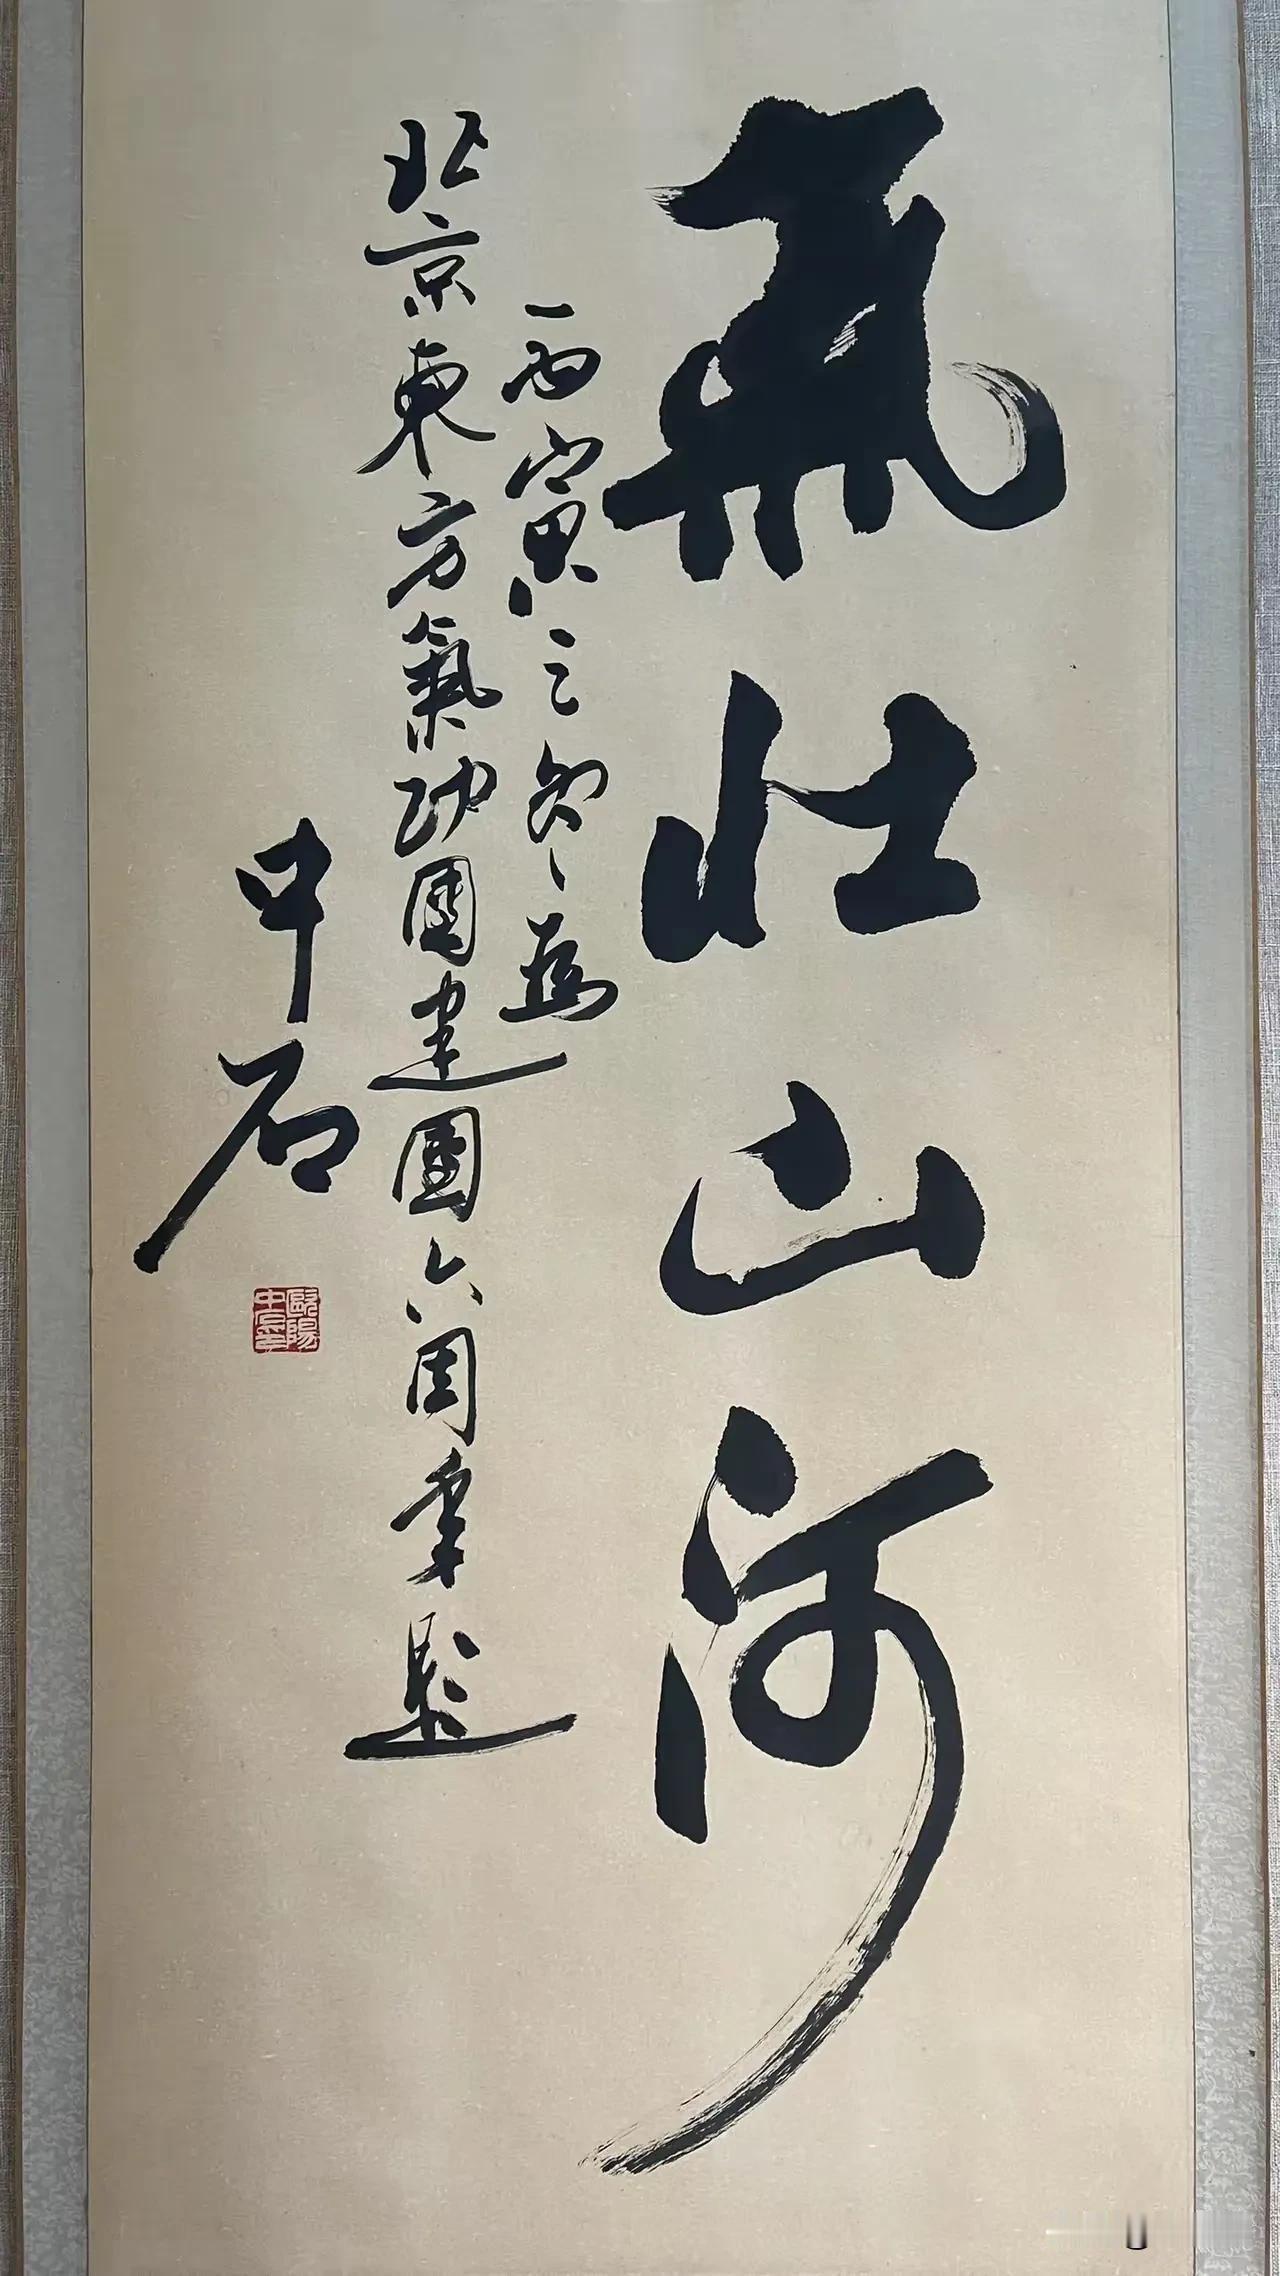 氣壮山河
丙寅之冬為
北京東方氣功團建團六周年題
中石
歐陽中石